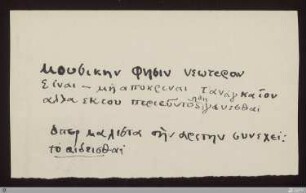 μουσικην φησιν νεωτερον
ειναι — μη αποκριναι ταναγκαιον
αλλα εκ του περιευντος ηδη γενεσθαι
απερ μαλιστα την αρετην συνεχει:
το αιδεισθαι